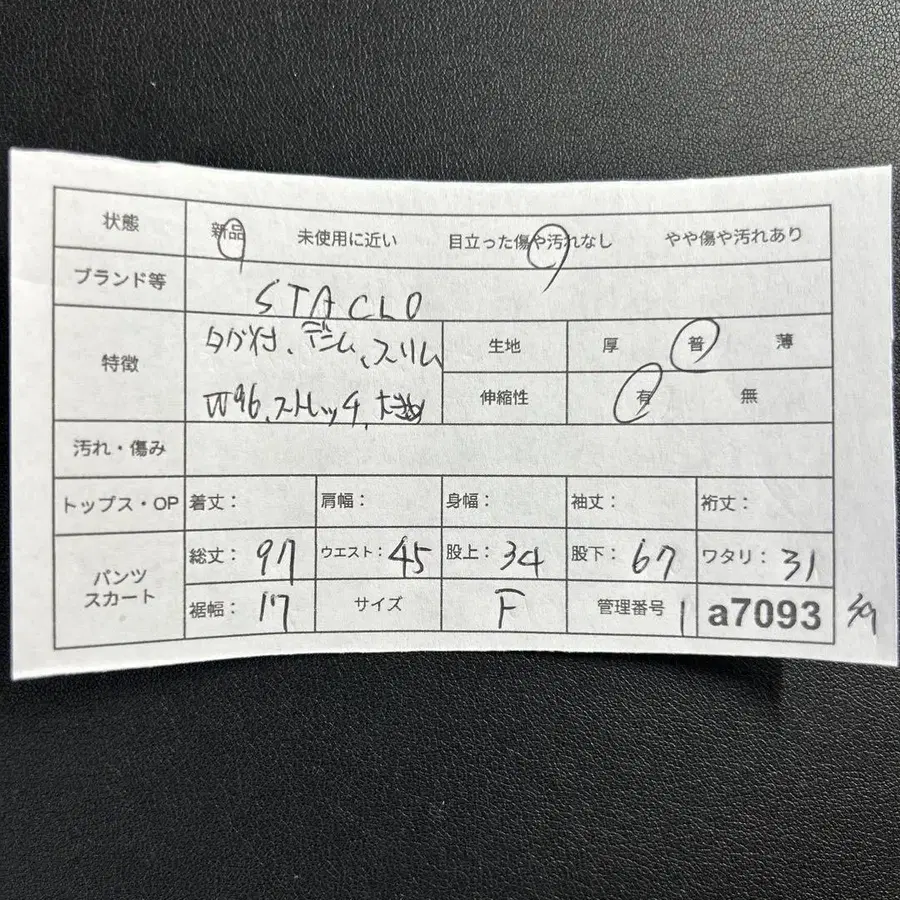 状態 新品 未使用に近い 目立った傷や汚れなし やや傷や汚れあり
ブランド等 STACLO
特徴 タグ付、デニム、スリム
W96、ストレッチ、大きめ
生地 厚 普 薄
伸縮性 有 無
汚れ・傷み
トップス・OP 着丈: 肩幅: 身幅: 袖丈: 裄丈:
パンツ スカート
総丈: 97 ウエスト: 45 股上: 34 股下: 67 ワタリ: 31
裾幅: 17 サイズ F 管理番号 1 a7093